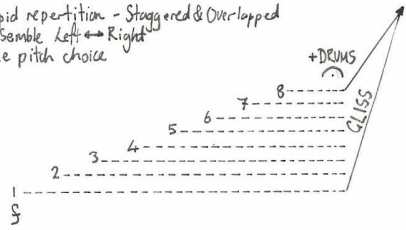 pid repertition - Staggered & Overlapped
semble Left ↔ Right
e pitch choice
+DRUMS
8
7
6
5
4
3
2
1
GLISS
f